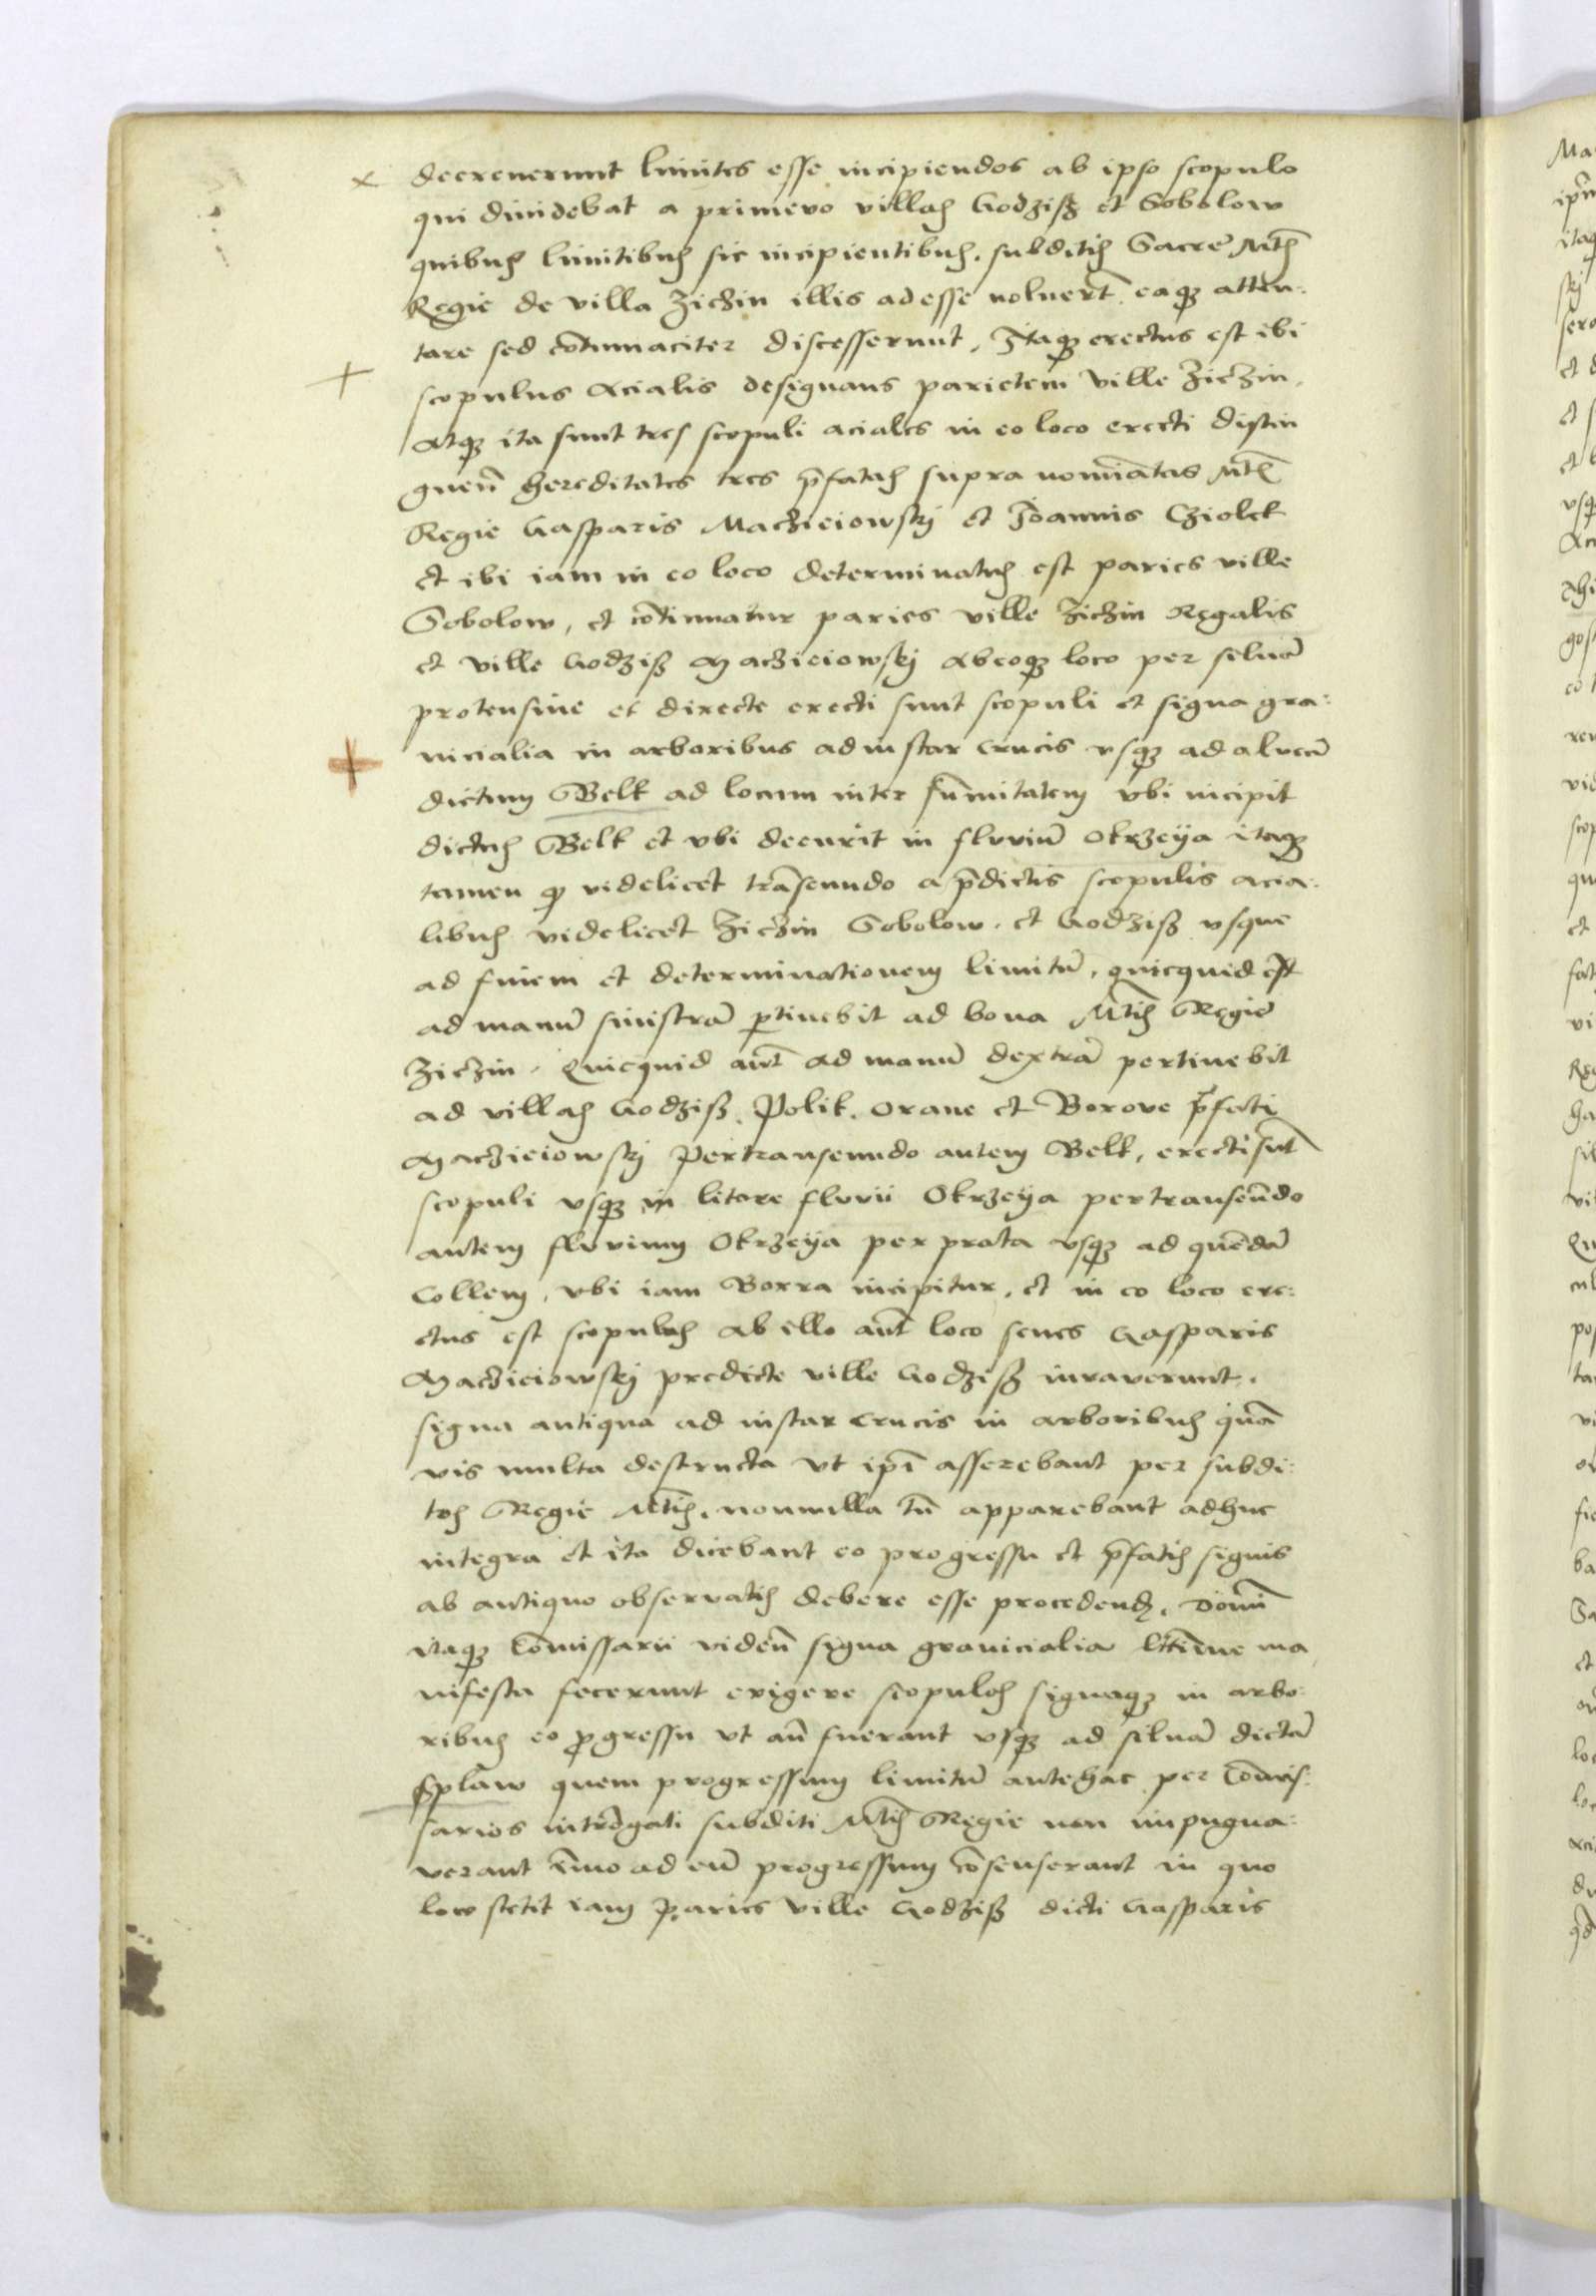 decreuerunt limites esse incipiendos ab ipso scopulo
qui diuidebat a primevo villas Godziſz et Sobolow
quibus limitibus sic incipientibus. subditis Sacre Mtis
Regie de villa Ziczin illis adesse noluert. eaqз atten:
tare sed cōtumaciter discesserunt. Itaqз erectus est ibi
scopulus Acialis designans parietem ville Ziczin.
Atqз ita sunt tres scopuli aciales in eo loco erecti distin
guen̄ hereditates tres p̄fatas supra nominatas Mtis
Regie Gasparis Maczieiowskj et Joannis Cziolek
et ibi iam in eo loco determinatus est paries ville
Sobolow, et cōtinuatur paries ville Ziczin Regalis
et ville Godziſz Macziejowskj Abeoqз loco per siluā
protensiue et directe erecti sunt scopuli et signa gra:
nicialia in arboribus ad instar crucis vsqз ad alveū
dictum Belk ad locum inter sūmitatem vbi incipit
dictus Belk et vbi decurit in fluviū Okrzeya itaqз
tamen qз videlicet trāseundo a p̄dictis scopulis acia:
libus videlicet Ziczin Sobolow. et Godziſz vsque
ad finem et determinationem limitū, quicquid est
ad manū sinistrā ꝑtinebit ad bona Mtis Regie
Ziczin. Quicquid aūt ad manū dextrā pertinebit
ad villas Godziſz. Polik. Orane et Borove p̄fati
Macziejowskj Pertranseundo autem Belk, erecti sūt
scopuli vsqз in litore fluvii Okrzeya pertranseūdo
autem fluvium Okrzeya per prata vsqз ad quēdā
Collem, vbi iam Borra incipitur, et in eo loco ere:
ctus est scopulus Ab illo aūt loco senes Gasparis
Macziejowskj predicte ville Godziſz iuraverunt.
signa antiqua ad instar crucis in arboribus quā
vis multa destructa vt ip̄i asserebant per subdi:
tos Regie Mtis. nonnulla tn̄ apparebant adhuc
integra et ita dicebant eo progressu et p̄fatis signis
ab antiquo observatis debere esse procedendз. Domini
itaqз Cōmissarii viden̄ signa granicialia ma
nifesta fecerunt erigere scopulos signaqз in arbo:
ribus eo ꝓgressu vt aūt fuerant vsqз ad siluā dictā
Splaw quem progressum limitū antehac per Cōmis:
sarios intērogati subditi Mtis Regie non impugna:
verant īmo ad eū progressum cōsenserant in quo
loco stetit iam Paries ville Godziſz dicti Gasparis